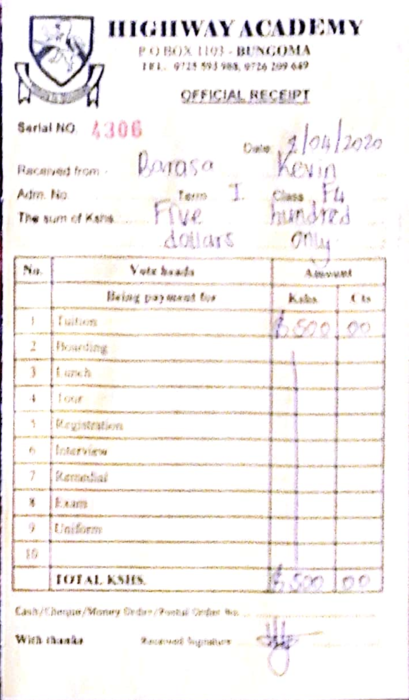 HIGHWAY ACADEMY
P.O BOX 1193 - BUNGOMA
TEL: 0725 593 988, 0726 209 649
OFFICIAL RECEIPT
Serial NO. 4306
Date 2/04/2020
Received from - Barasa Kevin
Adm. No Term I Class F4
The sum of Kshs Five hundred
dollars only
No. Vote heads Amount
Being payment for Kshs. Cts
1 Tuition $500 00
2 Boarding
3 Lunch
4 Tour
5 Registration
6 Interview
7 Remedial
8 Exam
9 Uniform
10
TOTAL KSHS. $500 00
Cash/Cheque/Money Order/Postal Order No.
With thanks Received Signature